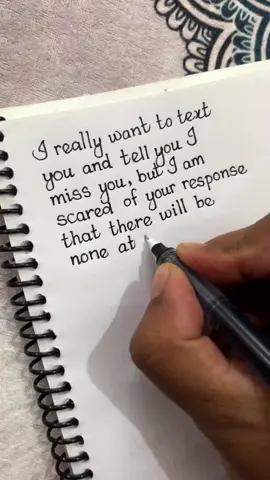 I really want to text
you and tell you I
miss you, but I am
scared of your response
that there will be
none at